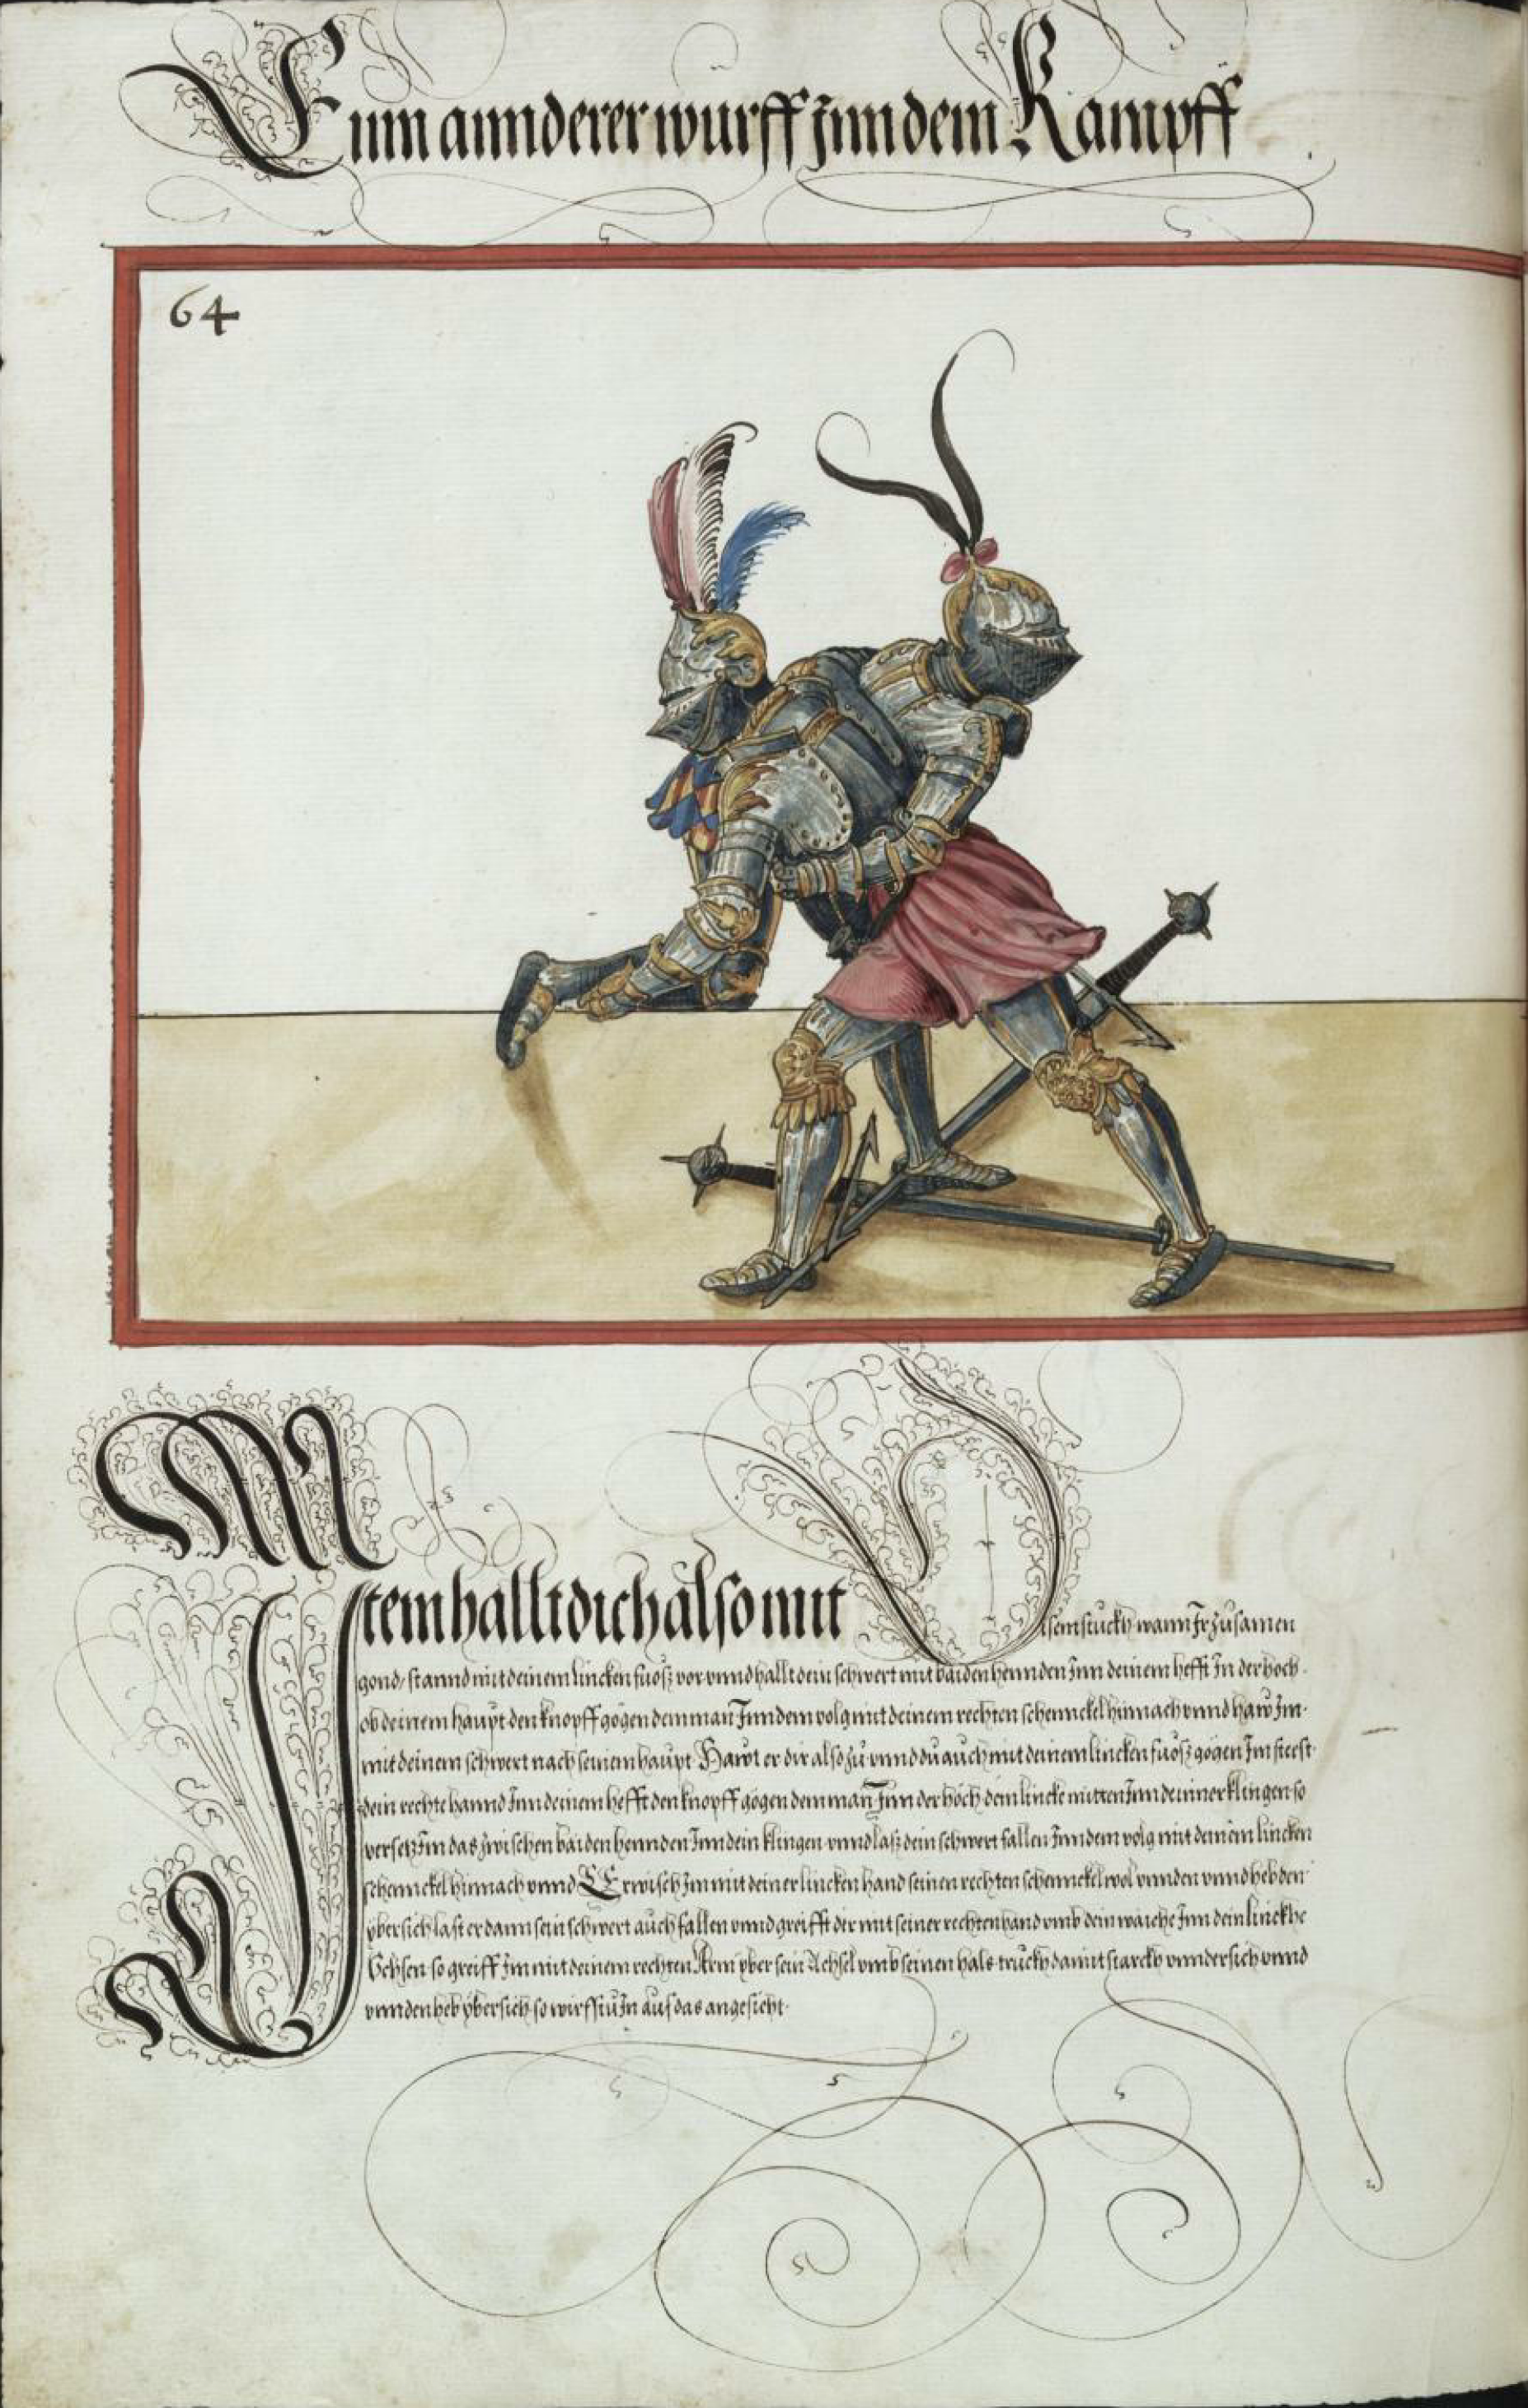 Ein annderer wurff zun dem Kampff
64
Item hallt dich also mit Disem stuckh wann Ir zusamen
gond, stannd mit deinem lincken fuosz vor vnnd hallt dein schwert mit baiden hennden Inn deinem hefft In der hoch
ob deinem haupt den knopff gögen dem man Inn dem volg mit deinem rechten schennckel hinnach vnnd haw Im
mit deinem schwert nach seinem haupt Hawt er dir also zu vnnd du auch mit deinem lincken fuosz gögen Im steest
dein rechte hannd Inn deinem hefft den knopff gögen dem man Inn der höch dein lincke mitten Inn deinner klingen so
versetz Im das zwischen baiden hennden Inn dein klingen vnnd lasz dein schwert fallen Inn dem volg mit deinem lincken
schennckel hinnach vnnd Erwisch Im mit deiner lincken hand seinen rechten schennckel wol vnnden vnnd heb den
ybersich last er dann sein schwert auch fallen vnnd greifft dir mit seiner rechten hand vmb dein waiche Inn dein linckhe
Vchsen so greiff Im mit deinem rechten Arm yber sein Achsel vmb seinen hals truckh damit starckh vnndersich vnnd
vnnden heb ybersich so wirffstu In auf das angesicht